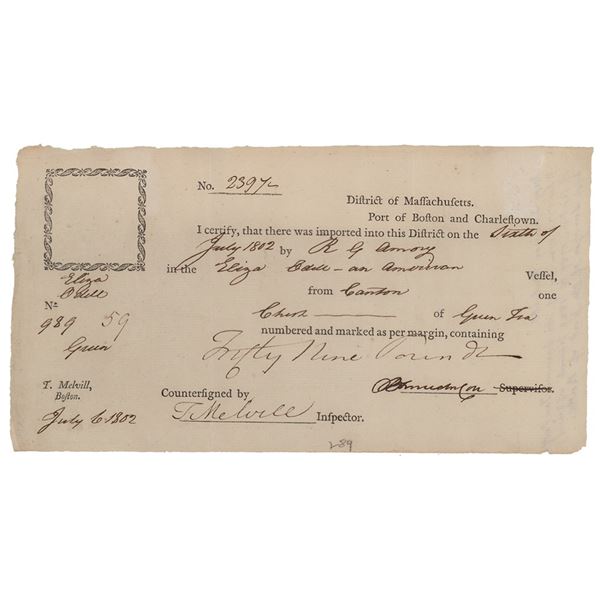 No. 2397
District of Massachusetts.
Port of Boston and Charlestown.
I certify, that there was imported into this District on the Sixth of
July 1802 by R G Amory
in the Eliza Odell - an American Vessel,
from Canton one
Chest of Green Tea
numbered and marked as per margin, containing
Fifty Nine Pounds
Supervisor.
Countersigned by T Melvill Inspector.
Eliza
Odell
No
989 59
Green
T. Melvill,
Boston.
July 6 1802
289